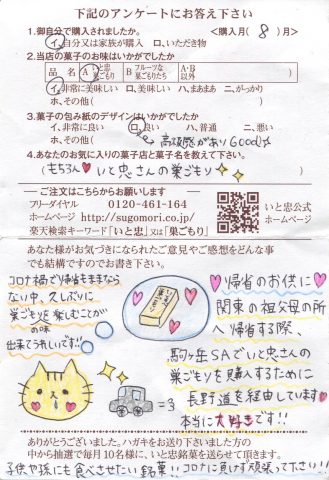 下記のアンケートにお答え下さい
1.御自分で購入されましたか。 <購入月( 8 )月>
イ、自分又は家族が購入 ロ、いただき物
2.当店の菓子のお味はいかがでしたか
品名 A いと忠巣ごもり B フルーツな巣ごもりたち A・B以外
イ、非常に美味しい ロ、美味しい ハ、まあまあ ニ、がっかり
ホ、その他( )
3.菓子の包み紙のデザインはいかがでしたか
イ、非常に良い ロ、良い ハ、普通 ニ、悪い
ホ、その他( 高級感がありGood♪ )
4.あなたのお気に入りの菓子店と菓子名を教えて下さい。
(もちろん♥いと忠さんの巣ごもり )
ご注文はこちらからお願いします
フリーダイヤル 0120-461-164
ホームページ http://sugomori.co.jp/
楽天検索キーワード「いと忠」又は「巣ごもり」
いと忠公式
ホームページ
あなた様がお気づきになられたご意見やご感想をどんな事
でも結構ですのでお書き下さい。
コロナ禍で帰省もままなら
ない中、久しぶりに
巣ごもりを楽しむことが
の味
出来てうれしいです!!
巣ごもり
♥帰省のお供に♥
関東の祖父母の所
へ帰省する際、
駒ヶ岳SAでいと忠さんの
巣ごもりを購入するために
長野道を経由しています♥
本当に大好きです!!
=3
ありがとうございました。ハガキをお送り下さいました方の
中から抽選で毎月10名様に、いと忠銘菓を送らせて頂きます。
子供や孫にも食べさせたい銘菓!!コロナに負けず頑張って下さい!!